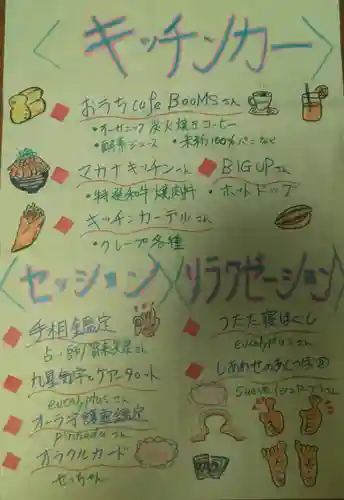 キッチンカー
おうちcafe BooMSさん
・オーガニック炭火焼きコーヒー
・酵素ジュース ・米粉100%パンなど
マカナキッチンさん
BIGUPさん
・特選和牛焼肉丼
・ホットドッグ
キッチンカーデルさん
・クレープ各種
セッション
リラクゼーション
手相鑑定
うたた寝ほぐし
占い師
さん
eucalyptusさん
九星気学とケアタロット
しあわせのあしつぼ
eucalyptusさん
オーラ守護霊鑑定
さん
オラクルカード
せっちゃん